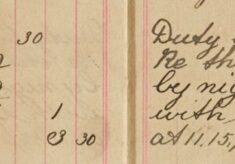 30
1
3 30
Duty
Re th
by nig
with
at 11.15,